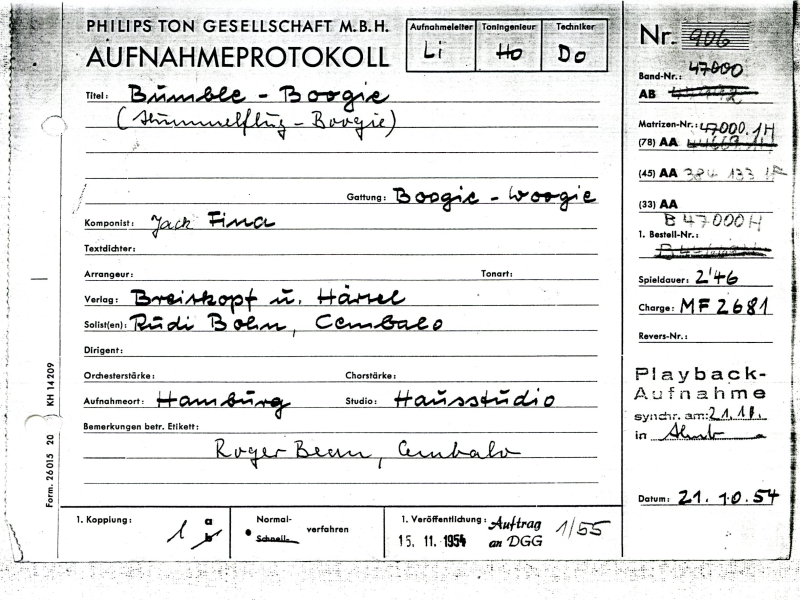 PHILIPS TON GESELLSCHAFT M.B.H.
AUFNAHMEPROTOKOLL
Aufnahmeleiter Toningenieur Techniker
Li Ho Do
Titel: Bumble - Boogie
(Hummelflug - Boogie)
Gattung: Boogie - Woogie
Komponist: Jack Fina
Textdichter:
Arrangeur: Tonart:
Verlag: Breitkopf u. Härtel
Solist(en): Rudi Bohn, Cembalo
Dirigent:
Orchesterstärke: Chorstärke:
Aufnahmeort: Hamburg Studio: Hausstudio
Bemerkungen betr. Etikett:
Roger Bean, Cembalo
1. Kopplung: 1 a
b
Normal-
Schnell- verfahren
1. Veröffentlichung: Auftrag 1/55
15. 11. 1954 an DGG
Nr. 906
47000
Band-Nr.:
AB
Matrizen-Nr.: 47000.1H
(78) AA
(45) AA 384 133
(33) AA
B 47000H
1. Bestell-Nr.:
Spieldauer: 2'46
Charge: MF 2681
Revers-Nr.:
Playback-
Aufnahme
synchr. am: 21.10.
in
Datum: 21. 10. 54
Form. 26015 20 KH 14209